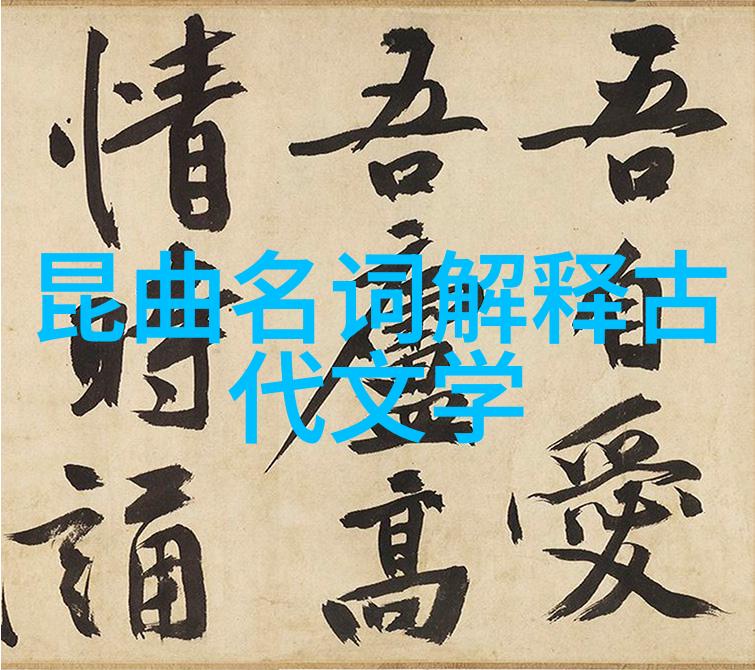 昆曲名词解释古
代文学
吾自愛
吾廬高
情時誦